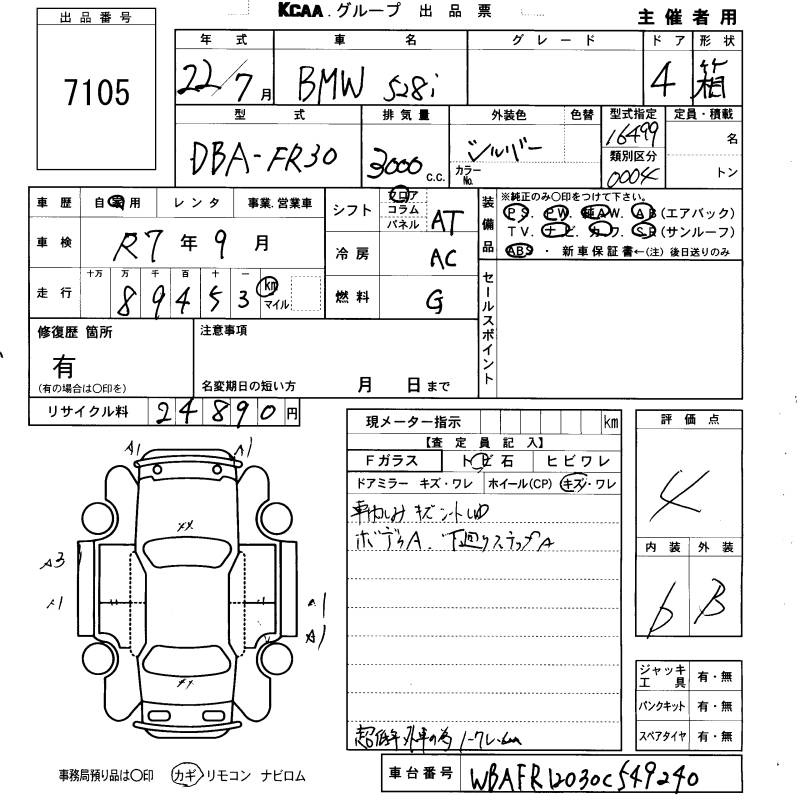 KCAA.グループ 出品票
主催者用
出品番号
7105
年式 車名 グレード ドア 形状
22/7月 BMW 528i 4 箱
型式 排気量 外装色 色替 型式指定 定員・積載
DBA-FR30 3000 c.c. シルバー カラーNo. 16499 名
類別区分
0004 トン
車歴 自家用 レンタ 事業.営業車
シフト フロア コラム パネル AT
装備品 ※純正のみ〇印をつけて下さい。
PS. PW. 純AW. AB(エアバック)
TV. ナビ. カワ. SR(サンルーフ)
ABS ・ 新車保証書←(注) 後日送りのみ
車検 R7年9月
冷房 AC
走行 十万 万 千 百 十 一
89453 km マイル
燃料 G
セールスポイント
修復歴 箇所 注意事項
有
(有の場合は〇印を) 名変期日の短い方 月 日まで
リサイクル料 24890円
現メーター指示 km
【査定員記入】
Fガラス トビ石 ヒビワレ
ドアミラー キズ・ワレ ホイール(CP) キズ・ワレ
ボディA. 下廻りステップA
評価点
4
内装 外装
b B
A1 A1
XX
A3
A1 A1
A1
XX
ジャッキ工具 有・無
パンクキット 有・無
スペアタイヤ 有・無
事務局預り品は〇印 カギ リモコン ナビロム
車台番号 WBAFR12030C549240